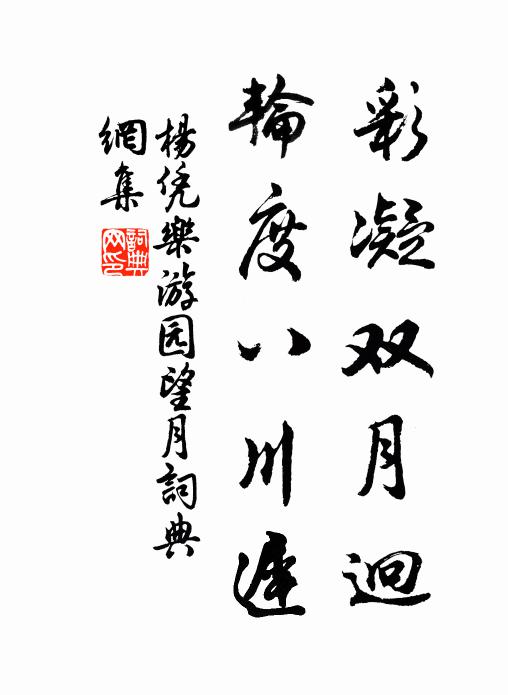 彩凝双月迥
輪度八川遲
楊凭樂游园望月詞典
網集
詞典
网印